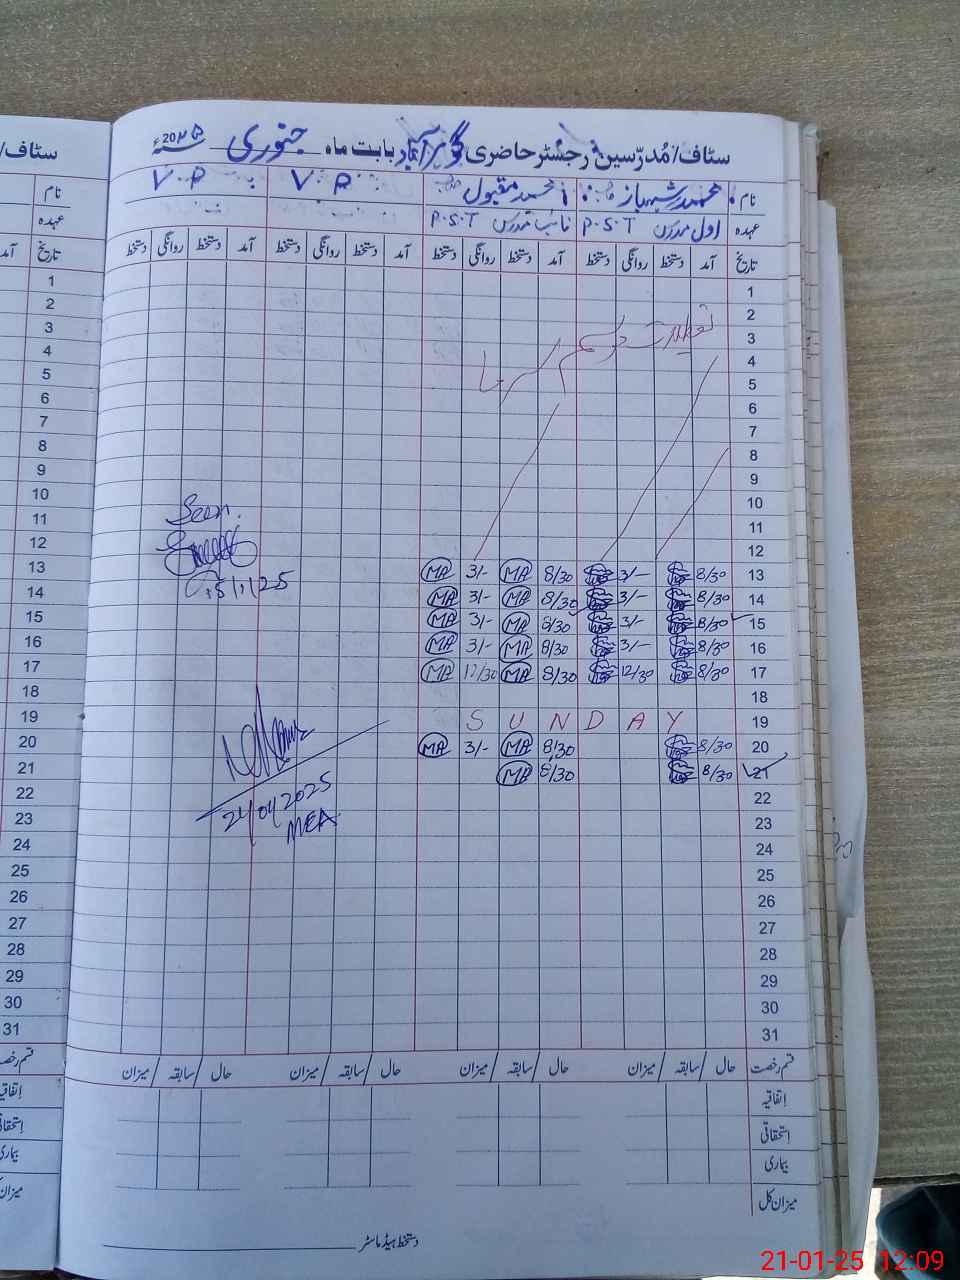 سٹاف/مُدرّسین رجسٹر حاضری گوہرآباد بابت ماہ جنوری 2025ء
نام محمد شہباز محمد مقبول V.P V.P
عہدہ اول مدرس P.S.T نائب مدرس P.S.T
تاریخ آمد دستخط روانگی دستخط آمد دستخط روانگی دستخط آمد دستخط روانگی دستخط آمد دستخط روانگی دستخط
1
2
تعطیلات موسم سرما
3
4
5
6
7
8
9
10
11
12
13 8/30 3/- 8/30 MA 3/- MA
14 8/30 3/- 8/30 MA 3/- MA
15 8/30 3/- 8/30 MA 3/- MA
16 8/30 3/- 8/30 MA 3/- MA
17 8/30 12/30 8/30 MA 12/30 MA
18
19 SUNDAY
20 8/30 8/30 MA 3/- MA
21 8/30 8/30 MA
22
23
24
25
26
27
28
29
30
31
Seen.
21/01/2025
MEA
قسم رخصت حال / سابقہ / میزان حال / سابقہ / میزان حال / سابقہ / میزان حال / سابقہ / میزان
اتفاقیہ
استحقاقی
بیماری
میزان کل
دستخط ہیڈ ماسٹر
سٹاف/
نام
عہدہ
تاریخ آمد
1
2
3
4
5
6
7
8
9
10
11
12
13
14
15
16
17
18
19
20
21
22
23
24
25
26
27
28
29
30
31
قسم رخصت
اتفاقیہ
استحقاقی
بیماری
میزان
21-01-25 12:09